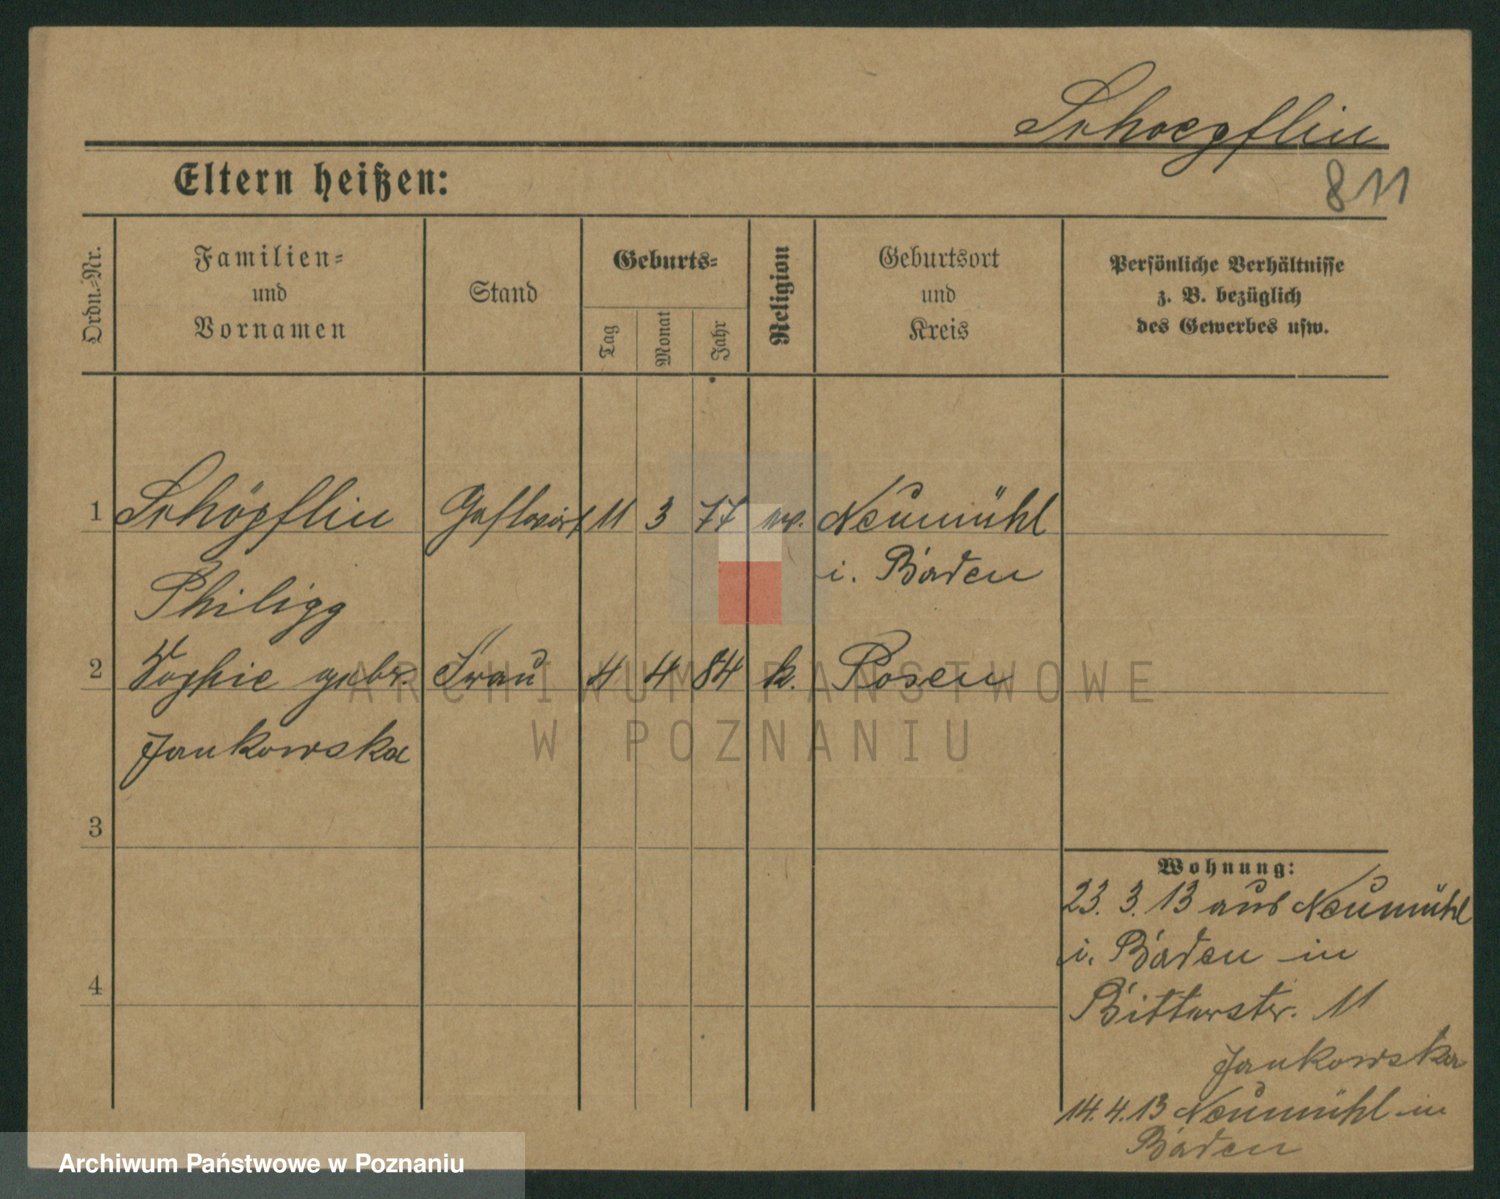 Schoepflin
811
Eltern heißen:
Ordn.-Nr.
Familien-
und
Vornamen
Stand
Geburts-
Tag
Monat
Jahr
Religion
Geburtsort
und
Kreis
Persönliche Verhältnisse
z. B. bezüglich
des Gewerbes usw.
1 Schöpflin Gastwirt 11 3 77 ev. Neumühl
i. Baden
Philipp
2 Sophie gebr. Frau 4 4 84 k. Posen
Jankowska
3
4
Wohnung:
23. 3. 13 aus Neumühl
i. Baden in
Ritterstr. 11
Jankowska
14. 4. 13 Neumühl in
Baden
ARCHIWUM PAŃSTWOWE
W POZNANIU
Archiwum Państwowe w Poznaniu